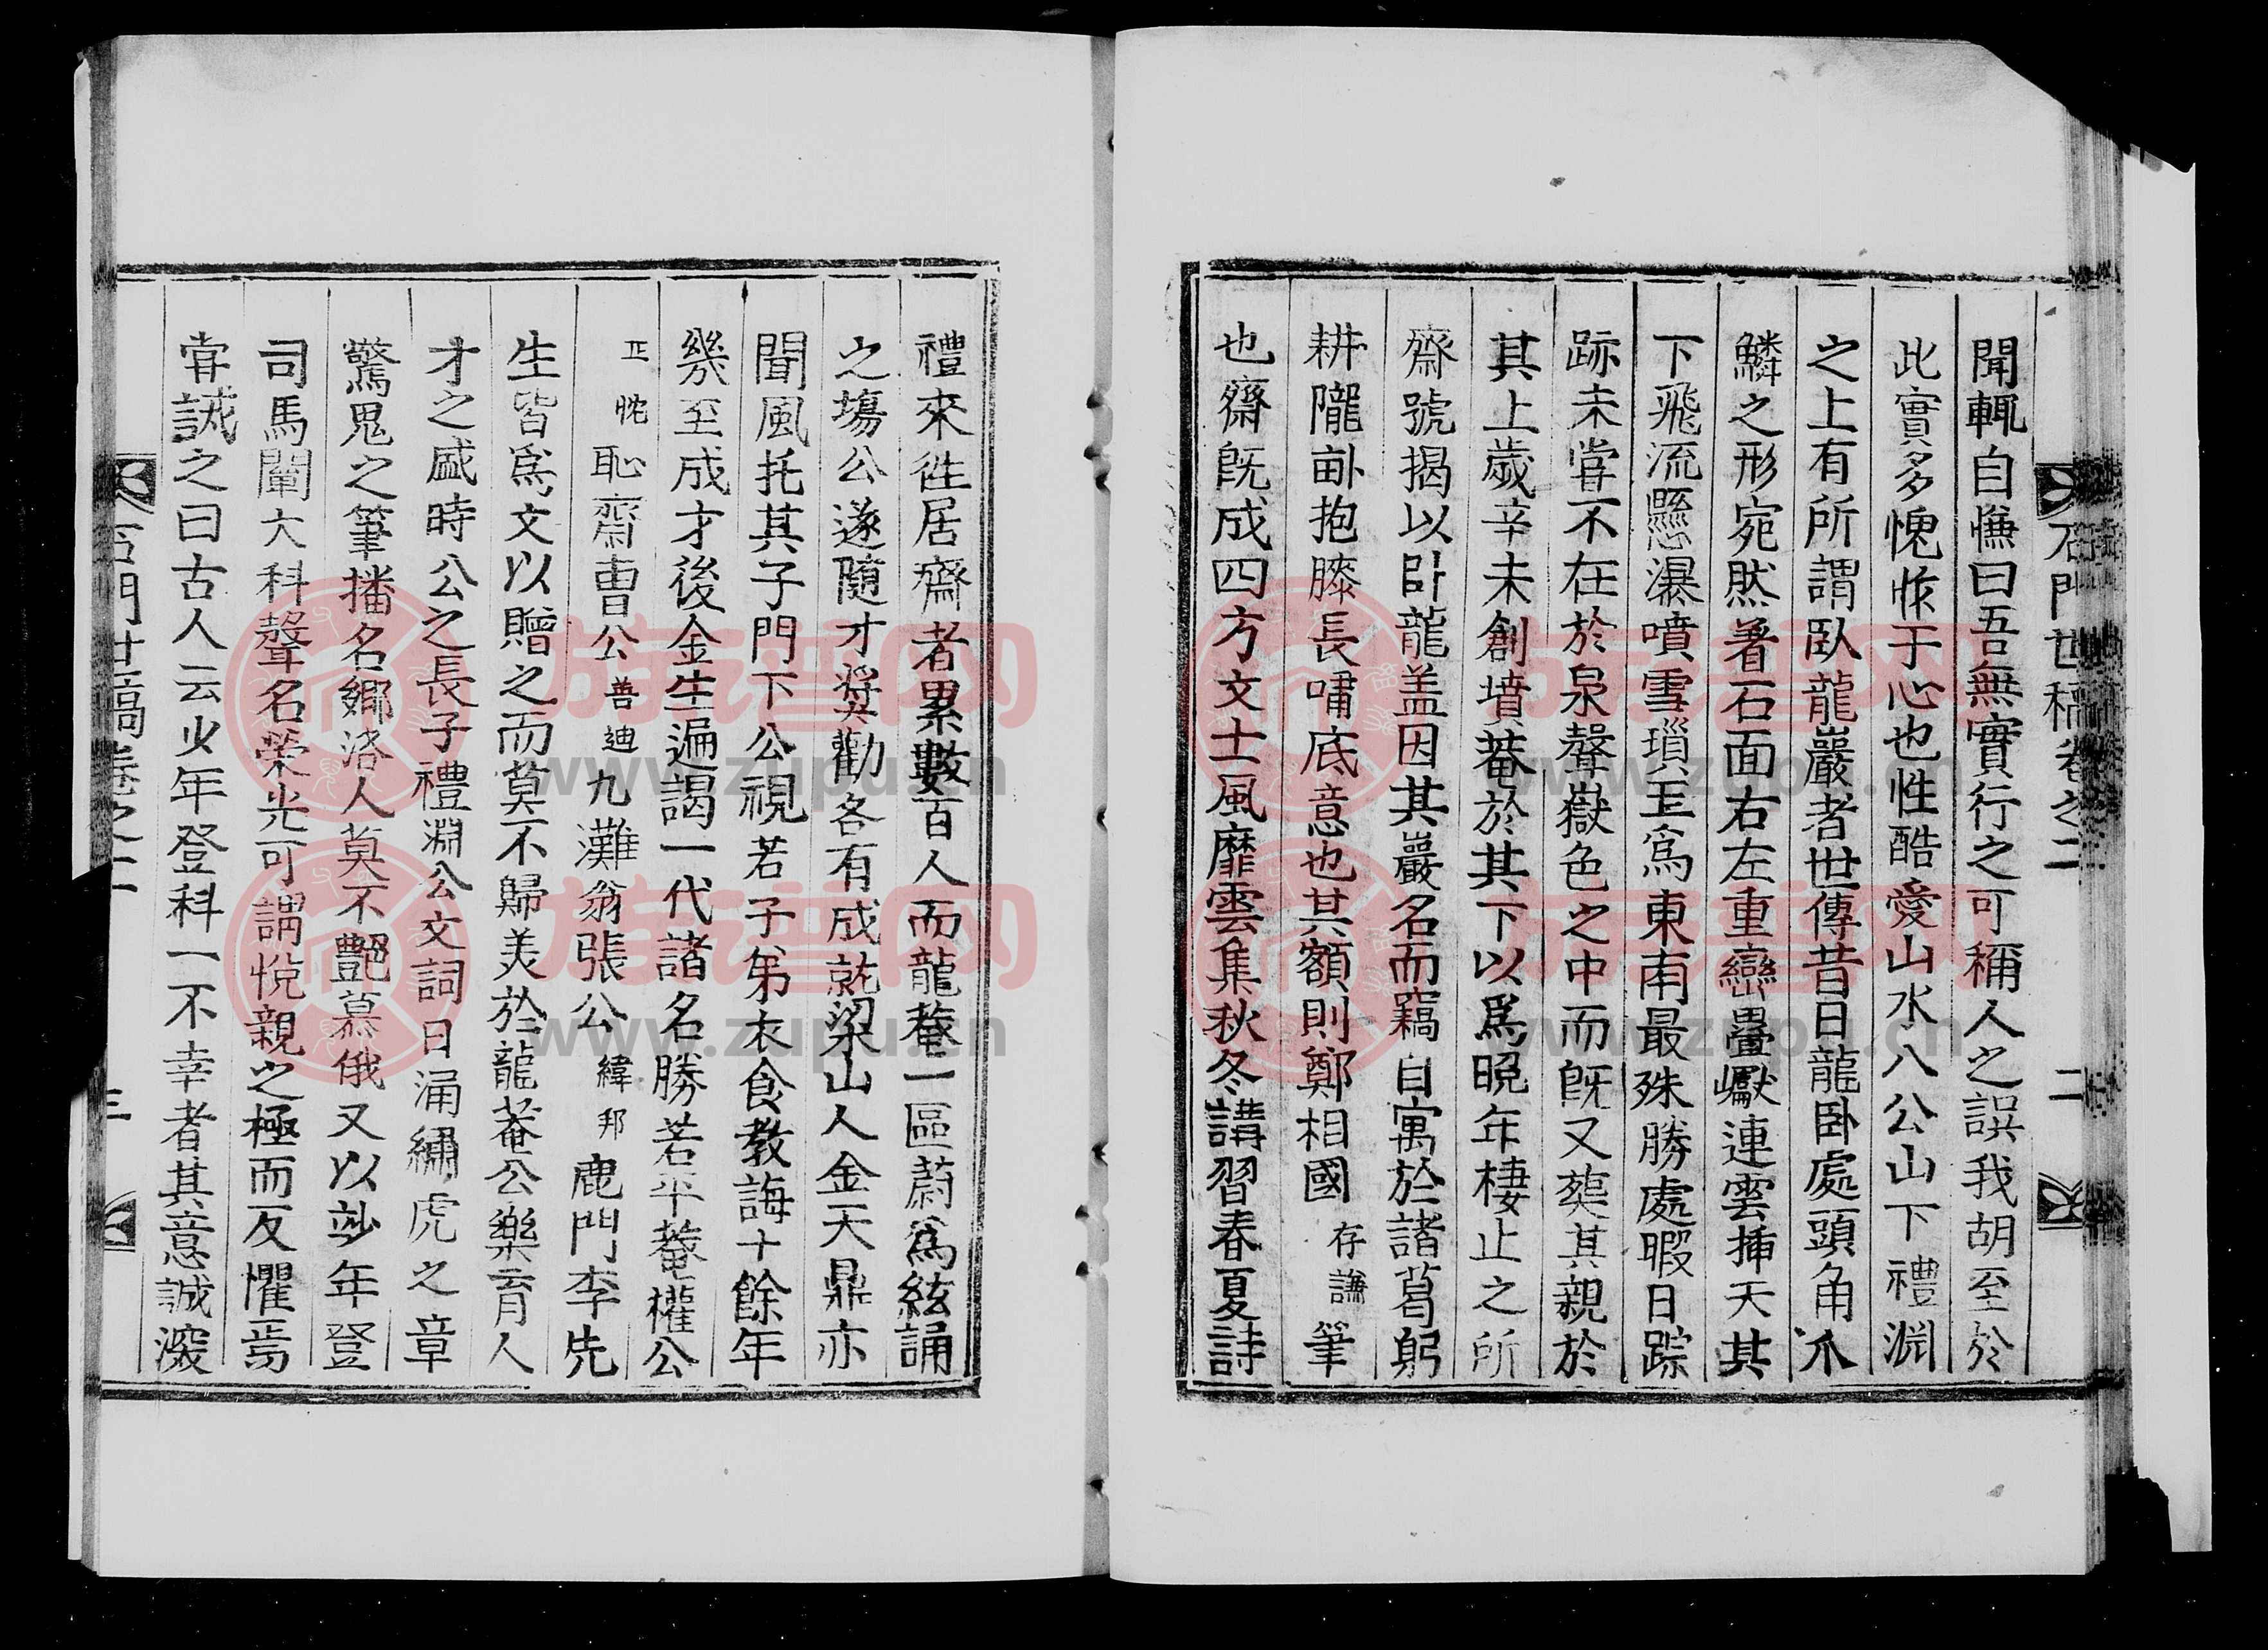 石門世稿卷之二
二
聞輒自慊曰吾無實行之可稱人之誤我胡至於
此實多愧怍于心也性酷愛山水八公山下禮淵
之上有所謂臥龍巖者世傳昔日龍臥處頭角爪
鱗之形宛然著石面右左重巒疊巘連雲揷天其
下飛流懸瀑噴雪瑣玉爲東南最殊勝處暇日踪
跡未嘗不在於泉聲嶽色之中而旣又葬其親於
其上歲辛未創墳菴於其下以爲晩年棲止之所
齋號揭以卧龍盖因其巖名而竊自寓於諸葛躬
耕隴畝抱膝長嘯底意也其額則鄭相國存謙筆
也齋旣成四方文士風靡雲集秋冬講習春夏詩
禮來徃居齋者累數百人而龍菴一區蔚爲絃誦
之塲公遂隨才奬勸各有成就梁山人金天鼎亦
聞風托其子門下公視若子弟衣食敎誨十餘年
幾至成才後金生遍謁一代諸名勝若平菴權公
正忱恥齋曺公善迪九灘翁張公緯邦鹿門李先
生皆爲文以贈之而莫不歸美於龍菴公樂育人
才之盛時公之長子禮淵公文詞日涌繡虎之章
驚鬼之筆播名鄕洛人莫不艶慕俄又以玅年登
司馬闡大科聲名榮光可謂悅親之極而反懼焉
甞誡之曰古人云少年登科一不幸者其意誠深
石門世稿卷之二
三
族谱网
www.zupu.cn
族谱网
www.zupu.cn
族谱网
www.zupu.cn
族谱网
www.zupu.cn